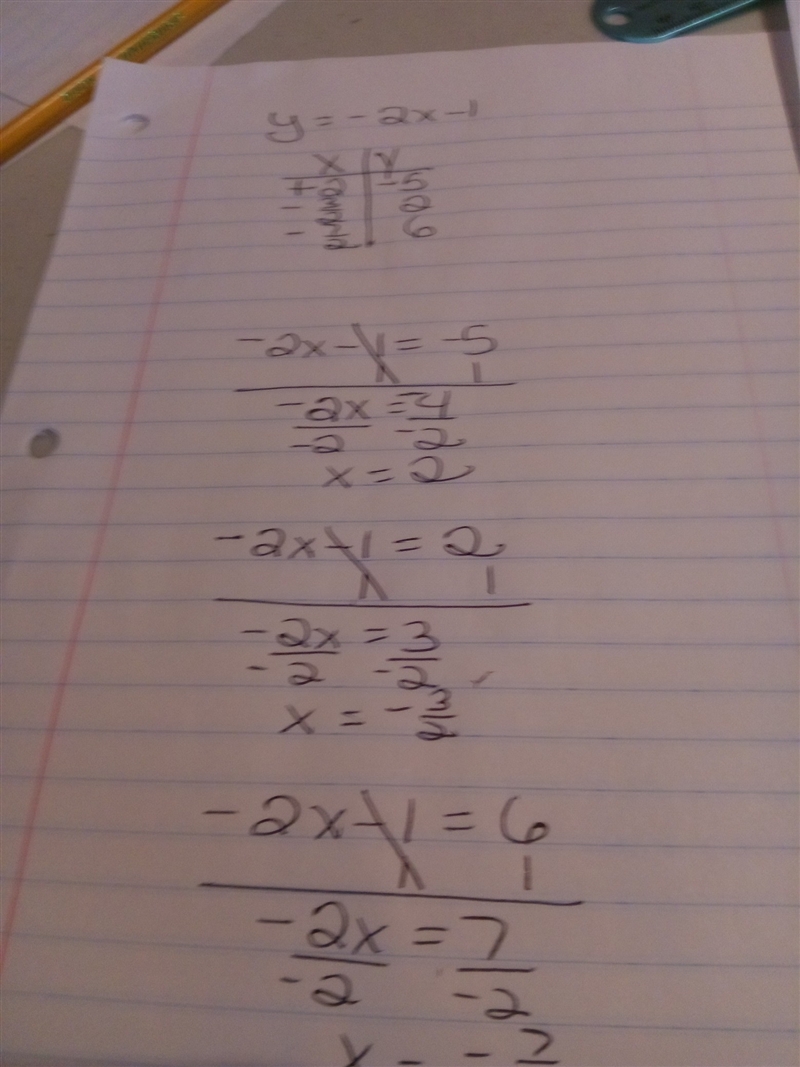 y = -2x-1
x | y
+ 2 | -5
- 3/2 | 2
- 7/2 | 6
-2x-1 = -5
1 1
-2x = -4
-2 -2
x = 2
-2x-1 = 2
1 1
-2x = 3
-2 -2
x = -3/2
-2x-1 = 6
1 1
-2x = 7
-2 -2
x = -7